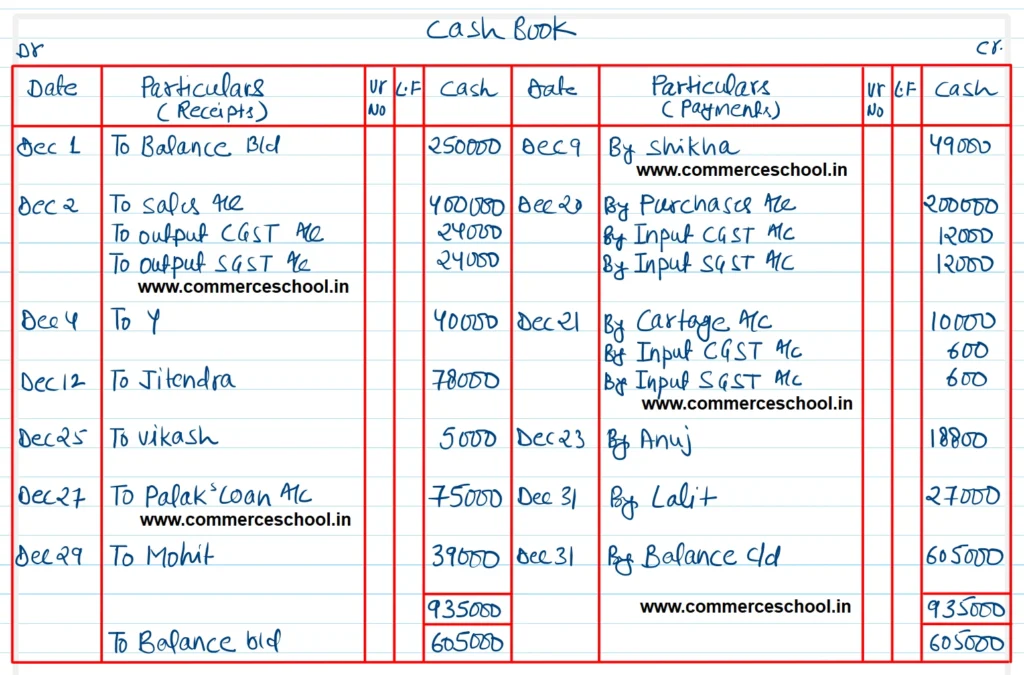 Cash Book
Dr
Cr.
Date Particulars (Receipts) Vr No L.F Cash Date Particulars (Payments) Vr No L.F Cash
Dec 1 To Balance B/d 250000 Dec 9 By Shikha 49000
www.commerceschool.in
Dec 2 To Sales A/c 400000 Dec 20 By Purchases A/c 200000
To output CGST A/c 24000 By Input CGST A/c 12000
To output SGST A/c 24000 By Input SGST A/c 12000
www.commerceschool.in
Dec 4 To Y 40000 Dec 21 By Cartage A/c 10000
By Input CGST A/c 600
Dec 12 To Jitendra 78000 By Input SGST A/c 600
www.commerceschool.in
Dec 25 To Vikash 5000 Dec 23 By Anuj 18800
Dec 27 To Palak's Loan A/c 75000 Dec 31 By Lalit 27000
www.commerceschool.in
Dec 29 To Mohit 39000 Dec 31 By Balance c/d 605000
935000 www.commerceschool.in 935000
To Balance b/d 605000 605000